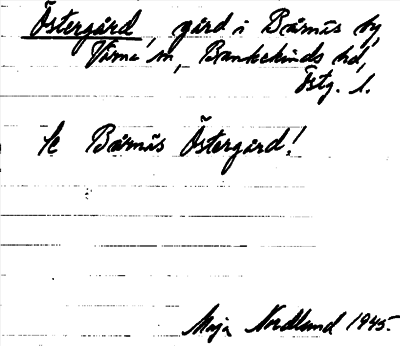 Östergård, gård i Bårnäs by,
Värna sn, Bankekinds hd,
Östg. l.
Se Bårnäs Östergård!
Maja Nordlund 1945.